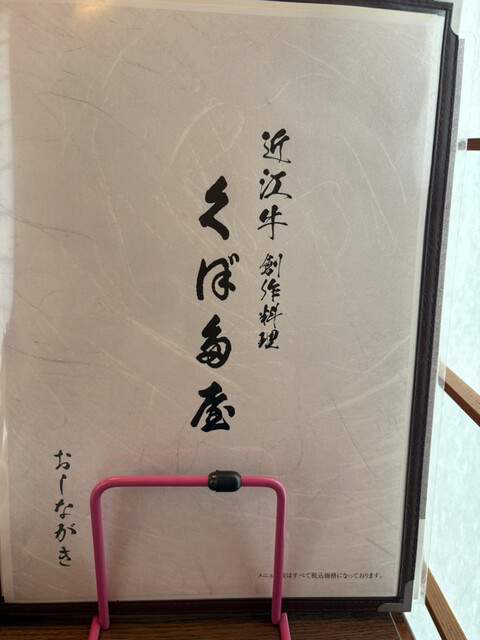 近江牛 創作料理
くぼ多屋
おしながき
メニュ はすべて税込価格になっております。